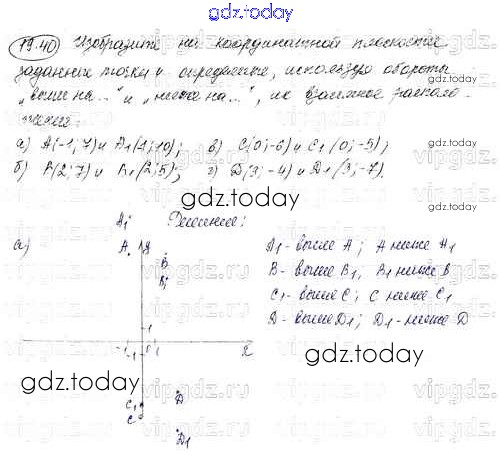 gdz.today
19.40 Изобразите на координатной плоскости
заданные точки и определите, используя обороты
„выше на...“ и „ниже на...“, их взаимное располо-
жение:
а) A(-1; 7) и A1(-1; 10); в) C(0; -6) и C1(0; -5);
б) B(2; 7) и B1(2; 5); г) D(3; -4) и D1(3; -7).
gdz.today
Решение:
а)
A1
A
y
B
B1
1
-1 0 1 x
-1
C1
C
D
D1
A1 - выше A; A ниже A1
B - выше B1, B1 ниже B
C1 - выше C; C ниже C1
D - выше D1; D1 - ниже D
gdz.today
gdz.today
gdz.today
vipgdz.ru